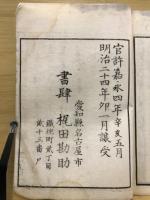 官許嘉永四年辛亥五月
明治二十四年卯一月譲受
愛知縣名古屋市
書肆 梶田勘助
鐵炮町貳丁目
貳十三番戸